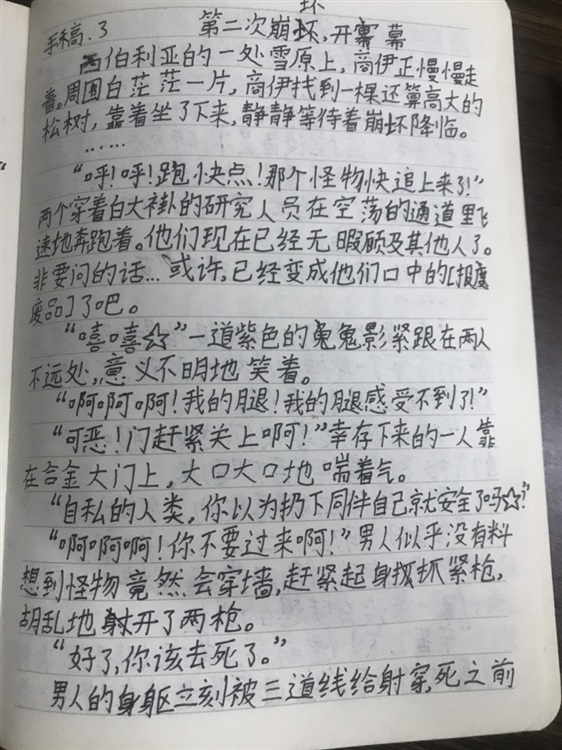 坏
手稿.3 第二次崩坏,开幕
西伯利亚的一处雪原上,商伊正慢慢走
着。周围白茫茫一片,商伊找到一棵还算高大的
松树,靠着坐了下来,静静等待着崩坏降临。
……
“呼!呼!跑,快点!那个怪物快追上来了!”
两个穿着白大褂的研究人员在空荡的通道里飞
速地奔跑着。他们现在已经无暇顾及其他人了。
非要问的话…或许,已经变成他们口中的[报废
废品]了吧。
“嘻嘻☆”一道紫色的鬼影紧跟在两人
不远处,意义不明地笑着。
“啊啊啊!我的腿!我的腿感受不到了!”
“可恶!门赶紧关上啊!”幸存下来的一人靠
在合金大门上,大口大口地喘着气。
“自私的人类,你以为扔下同伴自己就安全了吗☆?”
“啊啊啊!你不要过来啊!”男人似乎没有料
想到怪物竟然会穿墙,赶紧起身抓紧枪,
胡乱地射开了两枪。
“好了,你该去死了。”
男人的身躯立刻被三道线给射穿,死之前